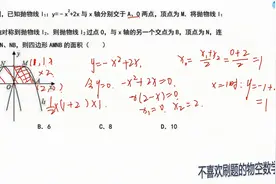 已知抛物线 l₁：y=-x²+2x 与 x 轴分别交于 A、O 两点，顶点为 M. 将抛物线 l₁
对称到抛物线 l₂. 则抛物线 l₂ 过点 O，与 x 轴的另一个交点为 B，顶点为 N，连
、NB，则四边形 AMNB 的面积（ ）
y=-x²+2x
令y=0. -x²+2x=0.
x(2-x)=0
x₁=0. x₂=2.
=(x₁+x₂)/2=(0+2)/2=1
x=1时: y=-1+
=1
½×(4+2)×1
B. 6
C. 8
D. 10
不喜欢刷题的物空数学